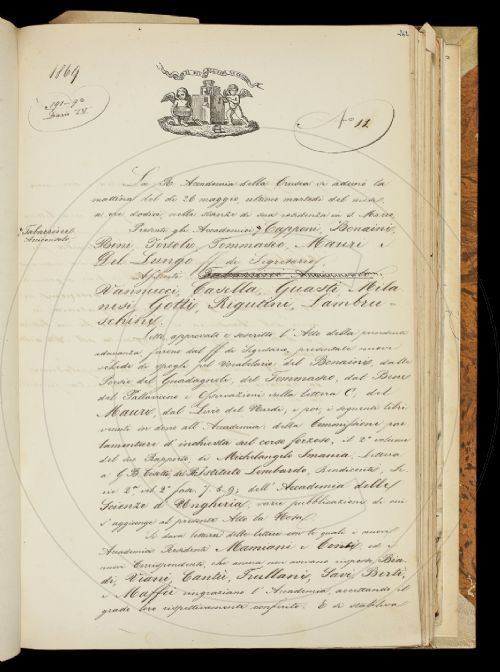 262
1869
N° 12
La R. Accademia della Crusca si adunò la
mattina del dì 26 maggio, ultimo martedì del mese,
a ore dodici, nelle stanze di sua residenza in S. Marco.
Tabarrini
Presenti gli Accademici Capponi, Bonaini,
Bini, Tortoli, Tommaseo, Mauri e
Del Lungo ff. di Segretario.
Assenti
Vannucci, Casella, Guasti, Mila-
nesi, Gotti, Rigutini, Lambru-
schini.
Letto, approvato e soscritto l'Atto della precedente
adunanza, furono dal ff. di Segretario, presentate nuove
schede di spogli pel Vocabolario del Bonaini, dalle
Poesie del Guadagnoli, del Tommaseo, dal Bene
del Pallavicino e Osservazioni sulla lettera C, del
Mauri, dal Livio del Nardi; e poi, i seguenti libri
venuti in dono all'Accademia: della Commissione par-
lamentare d'inchiesta sul corso forzoso, il 2° volume
del suo Rapporto, di Michelangelo Smania, Lettera
a G. B. del R. Istituto Lombardo, Rendiconti, Se-
rie 2ª vol. 2° fasc. 7. 8. 9; dell'Accademia delle
Scienze di Ungheria, varie pubblicazioni di cui
s'aggiunge al presente Atto la Nota.
Si dava lettura delle lettere con le quali i nuovi
Accademici Residenti Mamiani e Conti, ed i
nuovi Corrispondenti, che ancora non avevano risposto, Bia-
di, Viani, Cantù, Trullani, Savi, Berti,
e Maffei ringraziano l'Accademia, accettando il
grado loro rispettivamente conferito. E si stabiliva